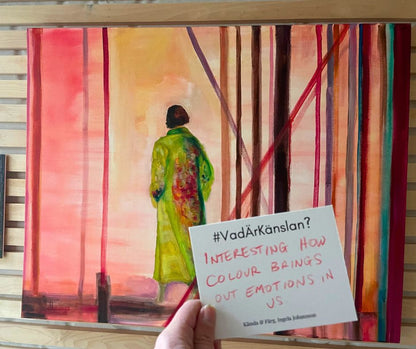 #VadÄrKänslan?
INTERESTING HOW
COLOUR BRINGS
OUT EMOTIONS IN
US
Känsla & Färg, Ingela Johansson